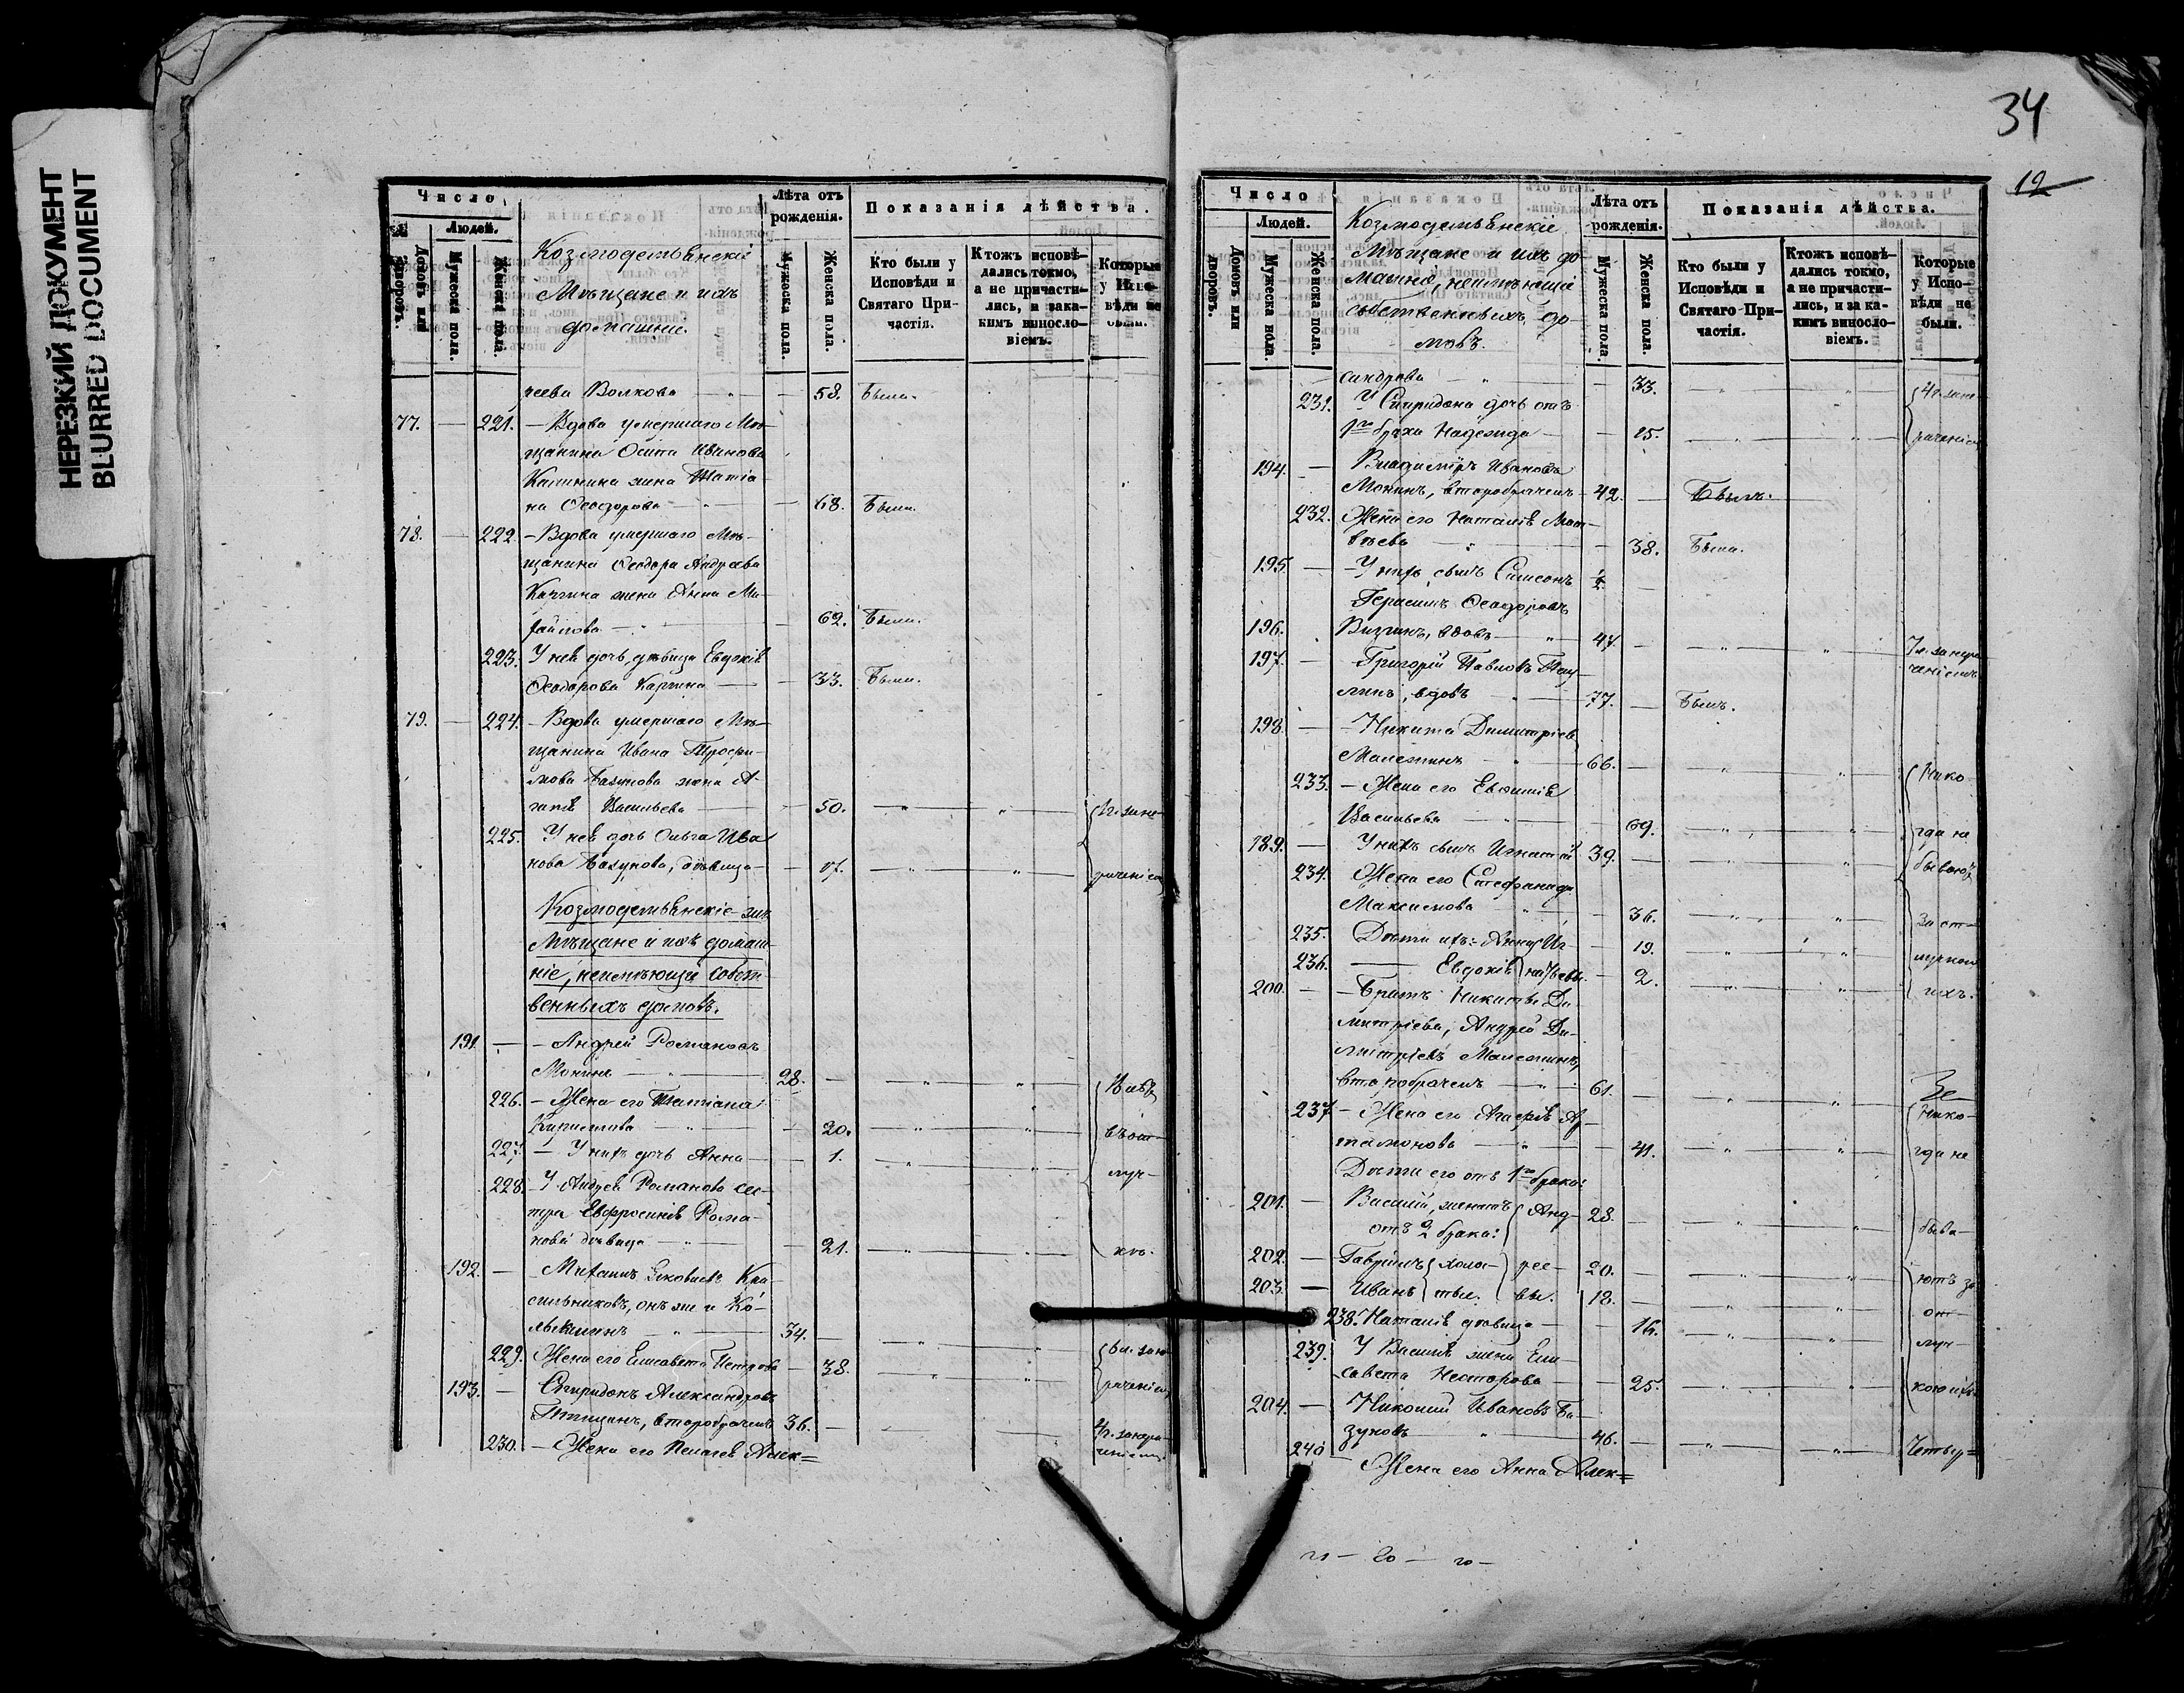 НЕРЕЗКИЙ ДОКУМЕНТ
BLURRED DOCUMENT
Число
Людей.
Домовъ или дворовъ.
Мужеска пола.
Женска пола.
Козмодемьянскіе
Мѣщане и ихъ
домашніе.
Лѣта отъ
рожденія.
Мужеска пола.
Женска пола.
Показанія дѣйства.
Кто были у
Исповѣди и
Святаго При-
частія.
Ктожъ исповѣ-
дались токмо,
а не причасти-
лись, и зака-
кимъ виносло-
віемъ.
Которые
у Испо-
вѣди не
были.
Волкова — 58. Была.
77. — 221. — Вдова умершаго Мѣ-
щанина Осипа Иванова
жена Татіа-
на Ѳеодорова — 68. Была.
78. — 222. — Вдова умершаго Мѣ-
щанина Ѳеодора Андреева
жена Анна Ми-
хайлова — 62. Была.
223. У нея дочь, дѣвица Евдокія
Ѳеодорова — 33. Была.
79. — 224. — Вдова умершаго Мѣ-
щанина Ивана Трофи-
мова Базунова жена А-
гапія Васильева — 50. — " — " —
225. У нея дочь Ольга Ива
нова Базунова, дѣвица — 17. — " — "
Козмодемьянскіе-же
Мѣщане и ихъ домаш-
ніе, неимѣющіе собст-
венныхъ домовъ.
191. — — Андрей Романовъ
Монинъ — " — 28. — " — "
226. — Жена его Татіана
Кириллова — " — 20. — " — " въ от-
227. — У нихъ дочь Анна — 1. — " — " луч-
228. У Андрея Романова сес-
тра Евфросинія Рома-
нова дѣвица — " — 21. — " — " кѣ.
192. — Михаилъ Яковлевъ Кра-
сильниковъ, онъ же и Ко-
— " — 34. — " — "
229. Жена его Елисавета Петрова — 38. — " — " раченіемъ
193. — Спиридонъ Александровъ
Птицынъ, второбрачный 36. —
230. — Жена его Пелагея Алек=
34
12
Число
Людей.
Домовъ или дворовъ.
Мужеска пола.
Женска пола.
Козмодемьянскіе
Мѣщане и ихъ до-
машніе, неимѣющіе
собственныхъ до-
мовъ.
Лѣта отъ
рожденія.
Мужеска пола.
Женска пола.
Показанія дѣйства.
Кто были у
Исповѣди и
Святаго При-
частія.
Ктожъ исповѣ-
дались токмо,
а не причасти-
лись, и за ка-
кимъ винносло-
віемъ.
Которые
у Испо-
вѣди не
были.
сандрова — " — 33. — " — "
231. У Спиридона дочь отъ
1го брака Надежда — 15. — " — " раченіемъ
194. — Владиміръ Ивановъ
Монинъ, второбрачный — 42. — Былъ.
232. Жена его Наталія Мат-
вѣева — " — 38. Была.
195. — — У нихъ сынъ Симеонъ
Герасимъ Ѳеодоровъ
196. вдовъ — " — 47. — " — "
197. — Григорій Павловъ
вдовъ — " — 77. — Былъ.
198. — — Никита Димитріевъ
Малетинъ — " — 66. — " — " Нико-
233. — Жена его Евфимія
Васильева — 69. — " — " гда не
189. — У нихъ сынъ Игнатій 39. — " — " бываютъ
234. Жена его Стефанида
Максимова — " — 36. — " — " За от-
235. Дѣти ихъ: Анна Иг- — 19. — " — " лучкою
236. — Евдокія натьевы. — 2. — " — " ихъ.
200. — — Братъ Никиты Ди
митріева, Андрей Ди-
митріевъ Малетинъ,
второбраченъ — " — 61. — " — "
237. — Жена его Агафія Ар-
тамонова — " — 41. — " — " Нико-
гда не
Дѣти его отъ 1го брака:
201. — Василій, женатъ Анд- 28. — " — " быва-
отъ 2 брака:
202. — Гавріилъ холос- рее- 20. — " — " ютъ за
203. — Иванъ тые. вы. 18. — " — " от-
238. Наталія дѣвица — 16. — " — " луч-
239. У Василія жена Ели-
савета Несторова — 25. — " — " кою ихъ
204. — Никонъ Ивановъ Ба-
зуновъ " — 46. — " — " Четыр=
240 — Жена его Анна Алек=